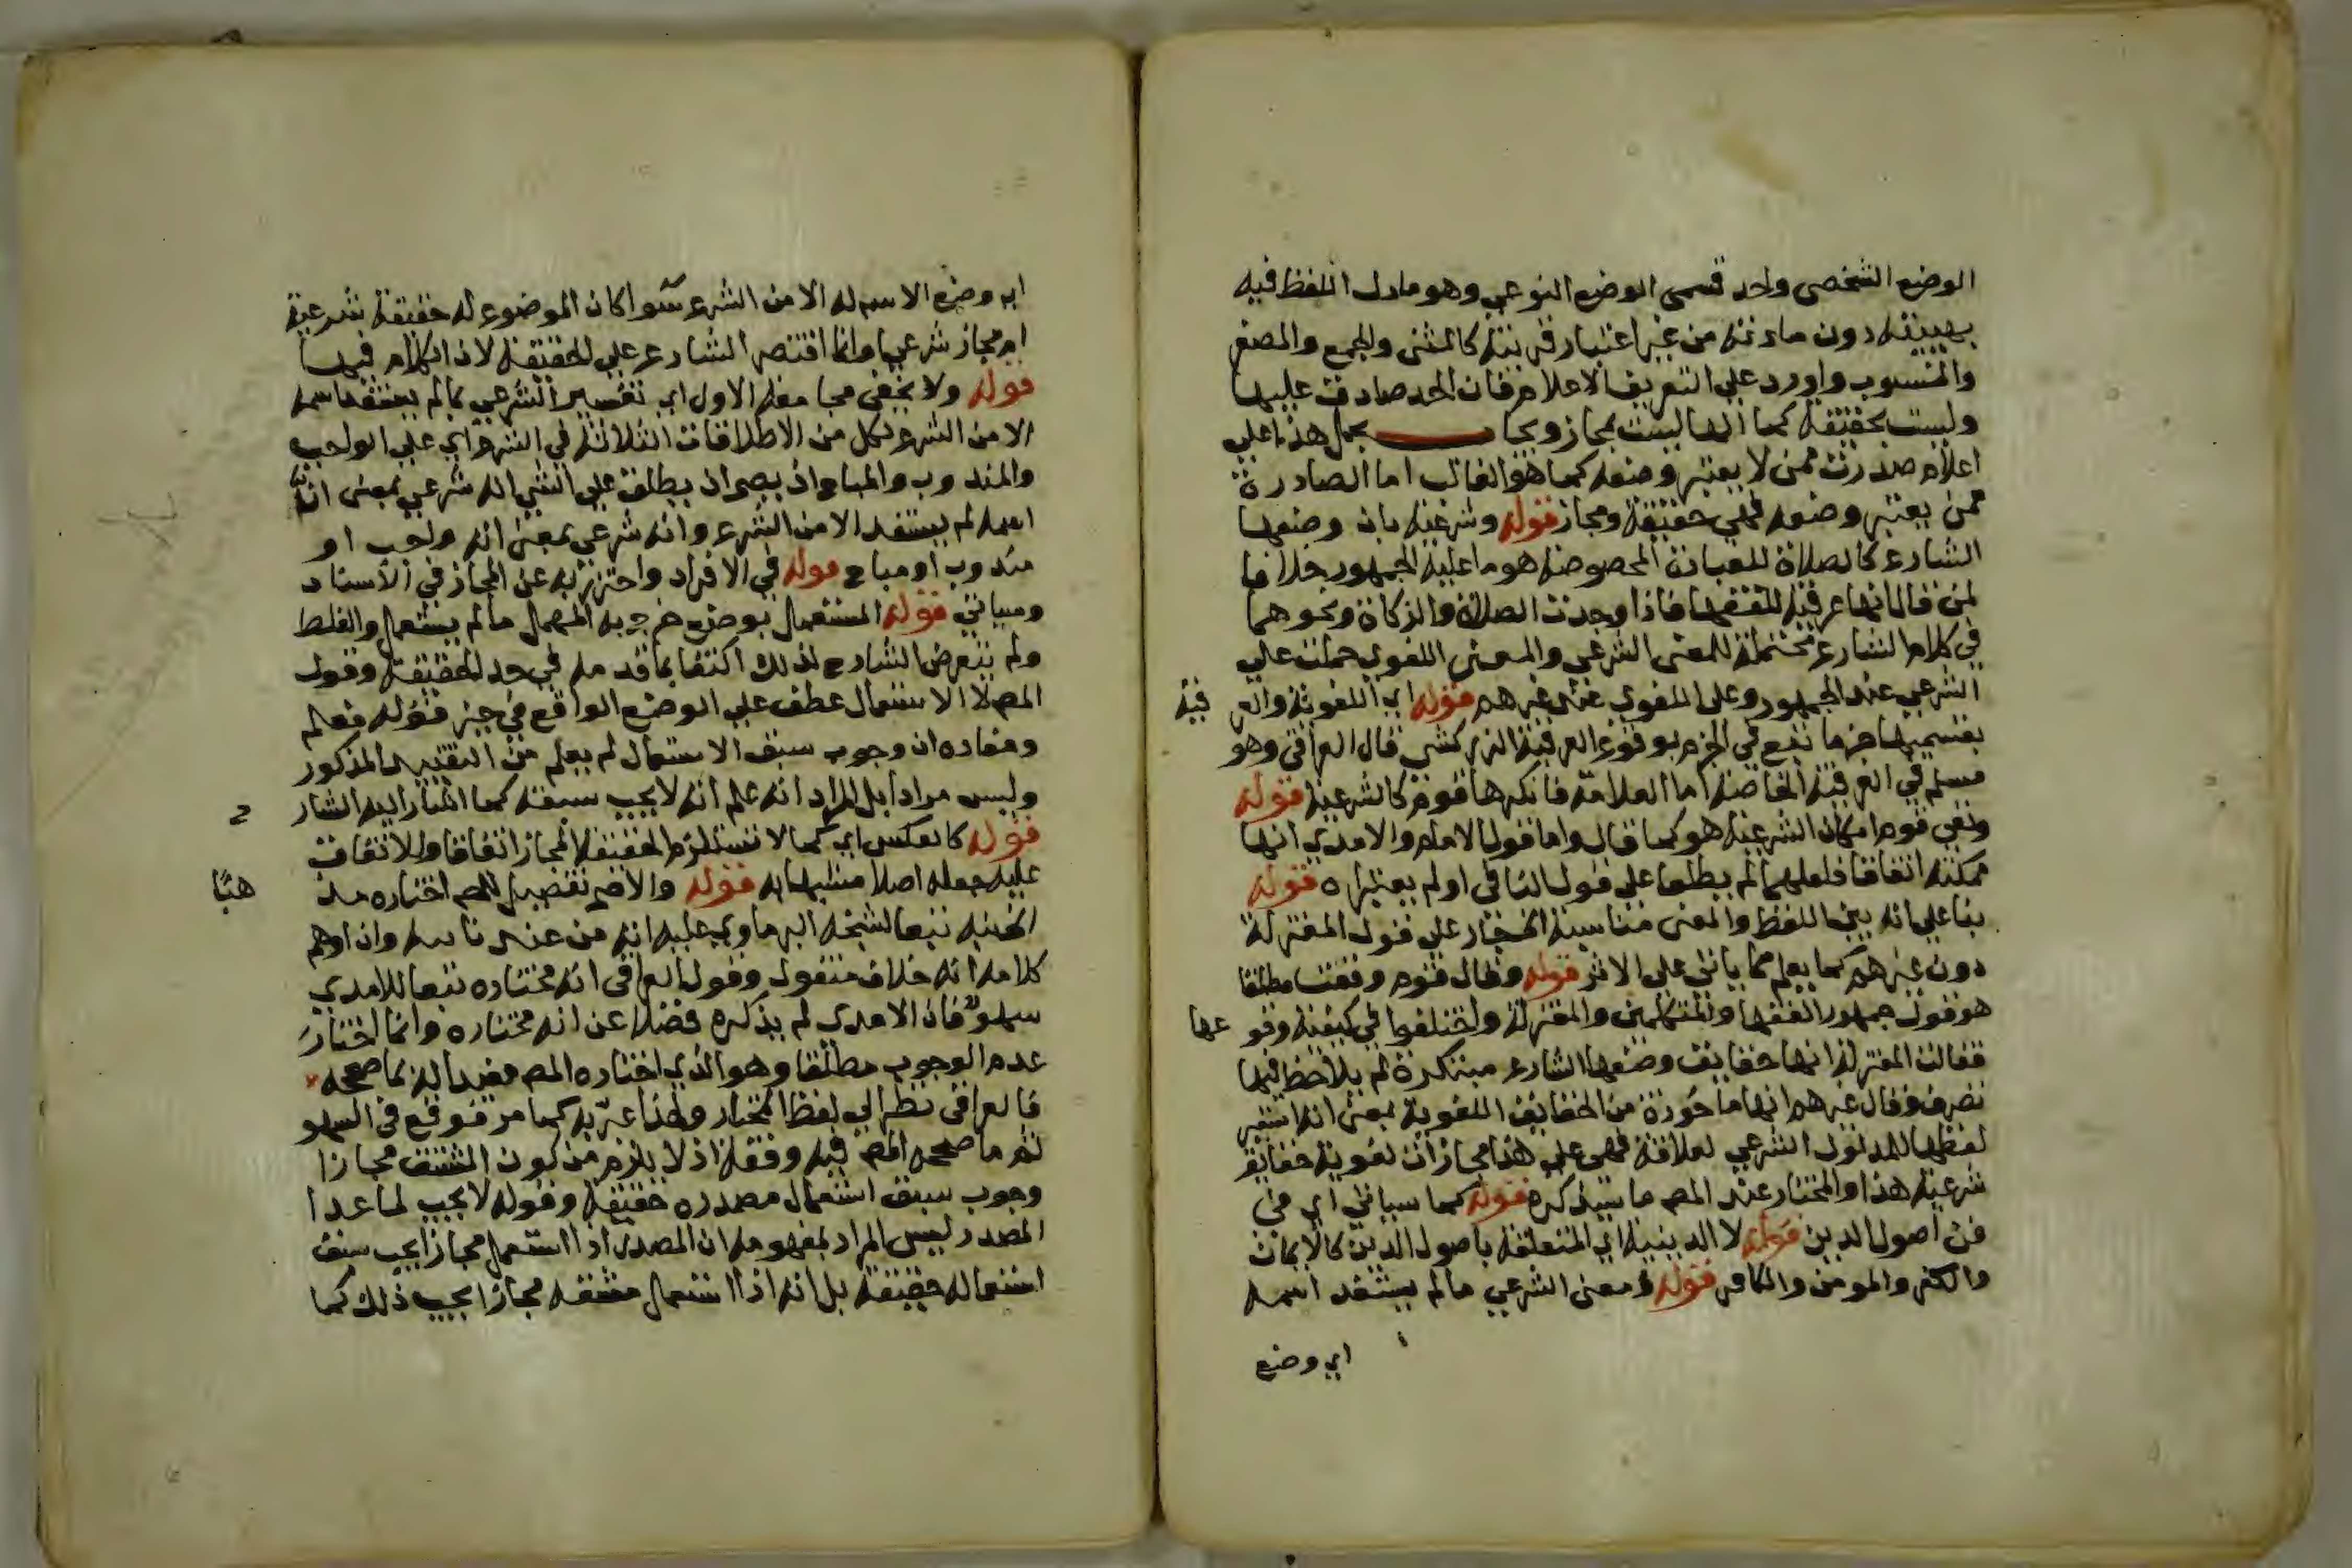 الوضع الشخصي واحد قسمى الوضع النوعي وهو ما دل اللفظ فيه
بهيئته دون مادته من غير اعتبار قرينة كالمثنى والجمع والمصغر
والمنسوب واورد على التعريف الاعلام فان الحد صادق عليها
وليست بحقيقة كما انها ليست بمجاز ويجاب بحمل هذا على
اعلام صدرت ممن لا يعتبر وضعه كما هو الغالب اما الصادرة
ممن يعتبر وضعه فهي حقيقة ومجاز قوله وشرعية بان وضعها
الشارع كالصلاة للعبادة المخصوصة هو ما عليه الجمهور خلافا
لمن قال انها عرفية للفقها فاذا وجدت الصلاة والزكاة ونحوهما
في كلام الشارع محتملة للمعنى الشرعي والمعنى اللغوي حملت على
الشرعي عند الجمهور وعلى اللغوي عند غيرهم قوله اي اللغوية والعر فية
بقسميها جزما تبع في الجزم بوقوع العرفية الزركشي قال العراقي وهو
مسلم في العرفية الخاصة اما العامة فانكرها قوم كالشرعية قوله
ونفى قوم امكان الشرعية هو كما قال واما قول الامام والامدي انها
ممكنة اتفاقا فلعلهما لم يطلعا على قول النافي او لم يعتبراه قوله
بنا على انه بين اللفظ والمعنى مناسبة اختيار على قول المعتزلة
دون غيرهم كما يعلم مما ياتي على الاثر قوله وقال قوم وقعت مطلقا
هو قول جمهور الفقها والمتكلمين والمعتزلة واختلفوا في كيفية وقو عها
فقالت المعتزلة انها حقايق وضعها الشارع مبتكرة لم يلاحظ فيها
تصرف وقال غيرهم انها ماخوذة من الحقايق اللغوية بمعنى انه استعير
لفظها للمدلول الشرعي لعلاقة فهي على هذا مجازات لغوية حقايق
شرعية هذا والمختار عند المص ما سيذكره قوله كما سياتي اي في
فن اصول الدين قوله لا الدينية اي المتعلقة باصول الدين كالايمان
والكفر والمومن والكافر قوله ومعنى الشرعي ما لم يستفد اسمه
اي وضع
اي وضع الاسم له الا من الشرع سوا كان الموضوع له حقيقة شرعية
ام مجاز شرعيا وانما اقتصر الشارع على الحقيقة لان الكلام فيها
قوله ولا يخفى مجامعة الاول اي تفسير الشرعي بما لم يستفد اسمه
الا من الشرع لكل من الاطلاقات الثلاثة في الشرع اي على الواجب
والمندوب والمباح اذ يصح ان يطلق على الشي انه شرعي بمعنى ان
اسمه لم يستفد الا من الشرع وانه شرعي بمعنى انه واجب او
مندوب او مباح قوله في الافراد واحترز به عن المجاز في الاسناد
وسياتي قوله المستعمل بوضع خرج به المهمل ما لم يستعمل والغلط
ولم يتعرض الشارح لذلك اكتفا بما قدمه في حد الحقيقة وقول
المص لا الاستعمال عطف على الوضع الواقع في حيز قوله فعلم
ومفاده ان وجوب سبق الاستعمال لم يعلم من التقييد المذكور
وليس مرادا بل المراد انه علم انه لا يجب سبقه كما اشار اليه الشار ح
قوله كالعكس اي كما لا تستلزم الحقيقة المجاز اتفاقا وللاتفاق
عليه جعله اصلا مشبها به قوله والاصح تفصيل للمص اختاره مذ هبا
كلامه انه خلاف منقول وقول العراقي انه مختاره تبعا للامدي
سهو فان الامدي لم يذكره فضلا عن انه مختاره وانما اختار
عدم الوجوب مطلقا وهو الذي اختاره المص مقيدا له بما صححه
فالعراقي نظر الى لفظ المختار ولهذا عبر به كما مر فوقع في السهو
ثم ما صححه المص فيه وقفة اذ لا يلزم من كون المشتق مجازا
وجوب سبق استعمال مصدره حقيقة وقوله لا يجب لما عدا
المصدر ليس المراد بمفهومه ان المصدر اذا استعمل مجازا يجب سبق
استعماله حقيقة بل انه اذا استعمل مشتقه مجازا يجب ذلك كما